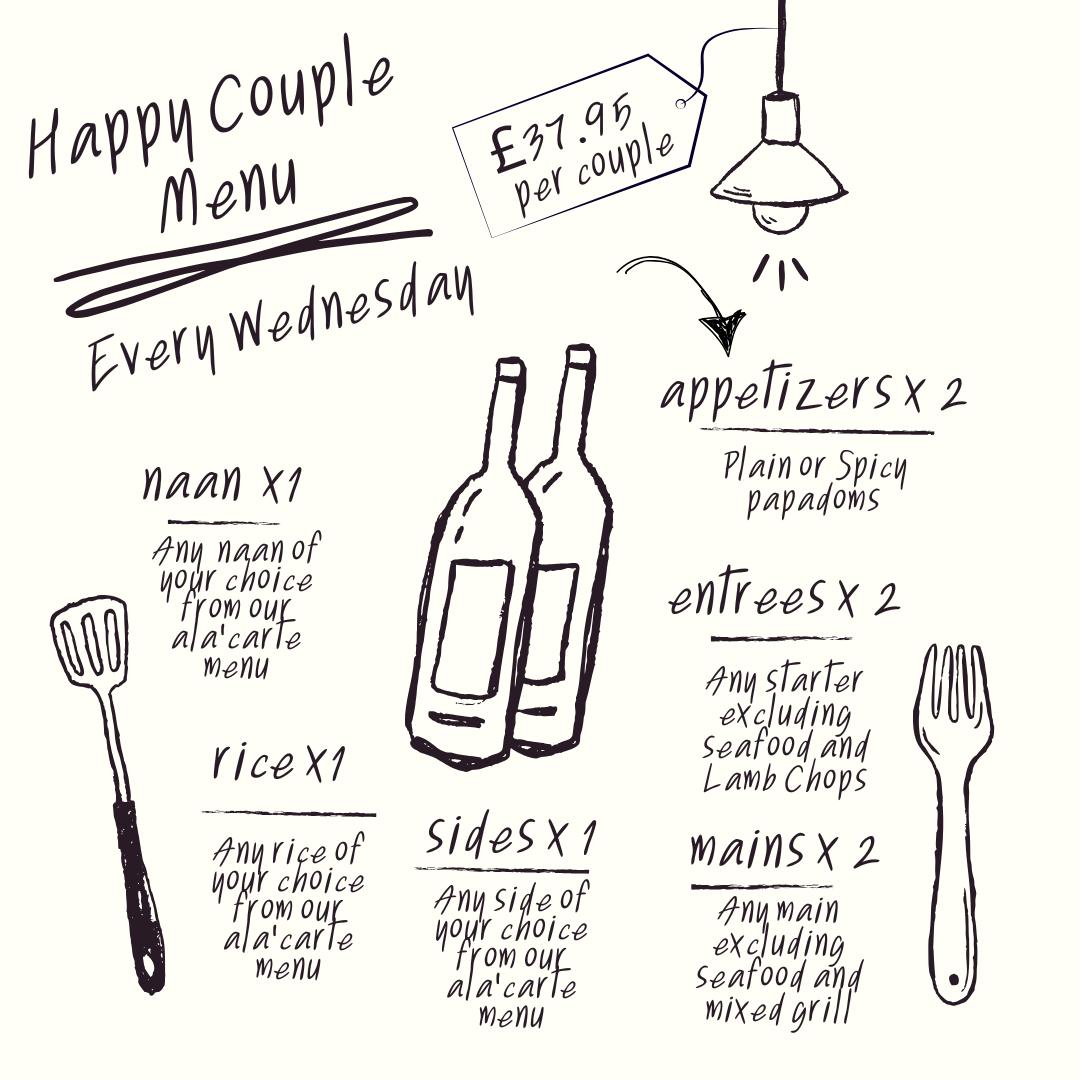 Happy Couple
Menu
Every Wednesday
£37.95
per couple
appetizers x 2
Plain or Spicy
papadoms
naan x1
Any naan of
your choice
from our
a la'carte
menu
entrees x 2
Any starter
excluding
seafood and
Lamb Chops
rice x1
Any rice of
your choice
from our
a la'carte
menu
sides x 1
Any side of
your choice
from our
a la'carte
menu
mains x 2
Any main
excluding
seafood and
mixed grill